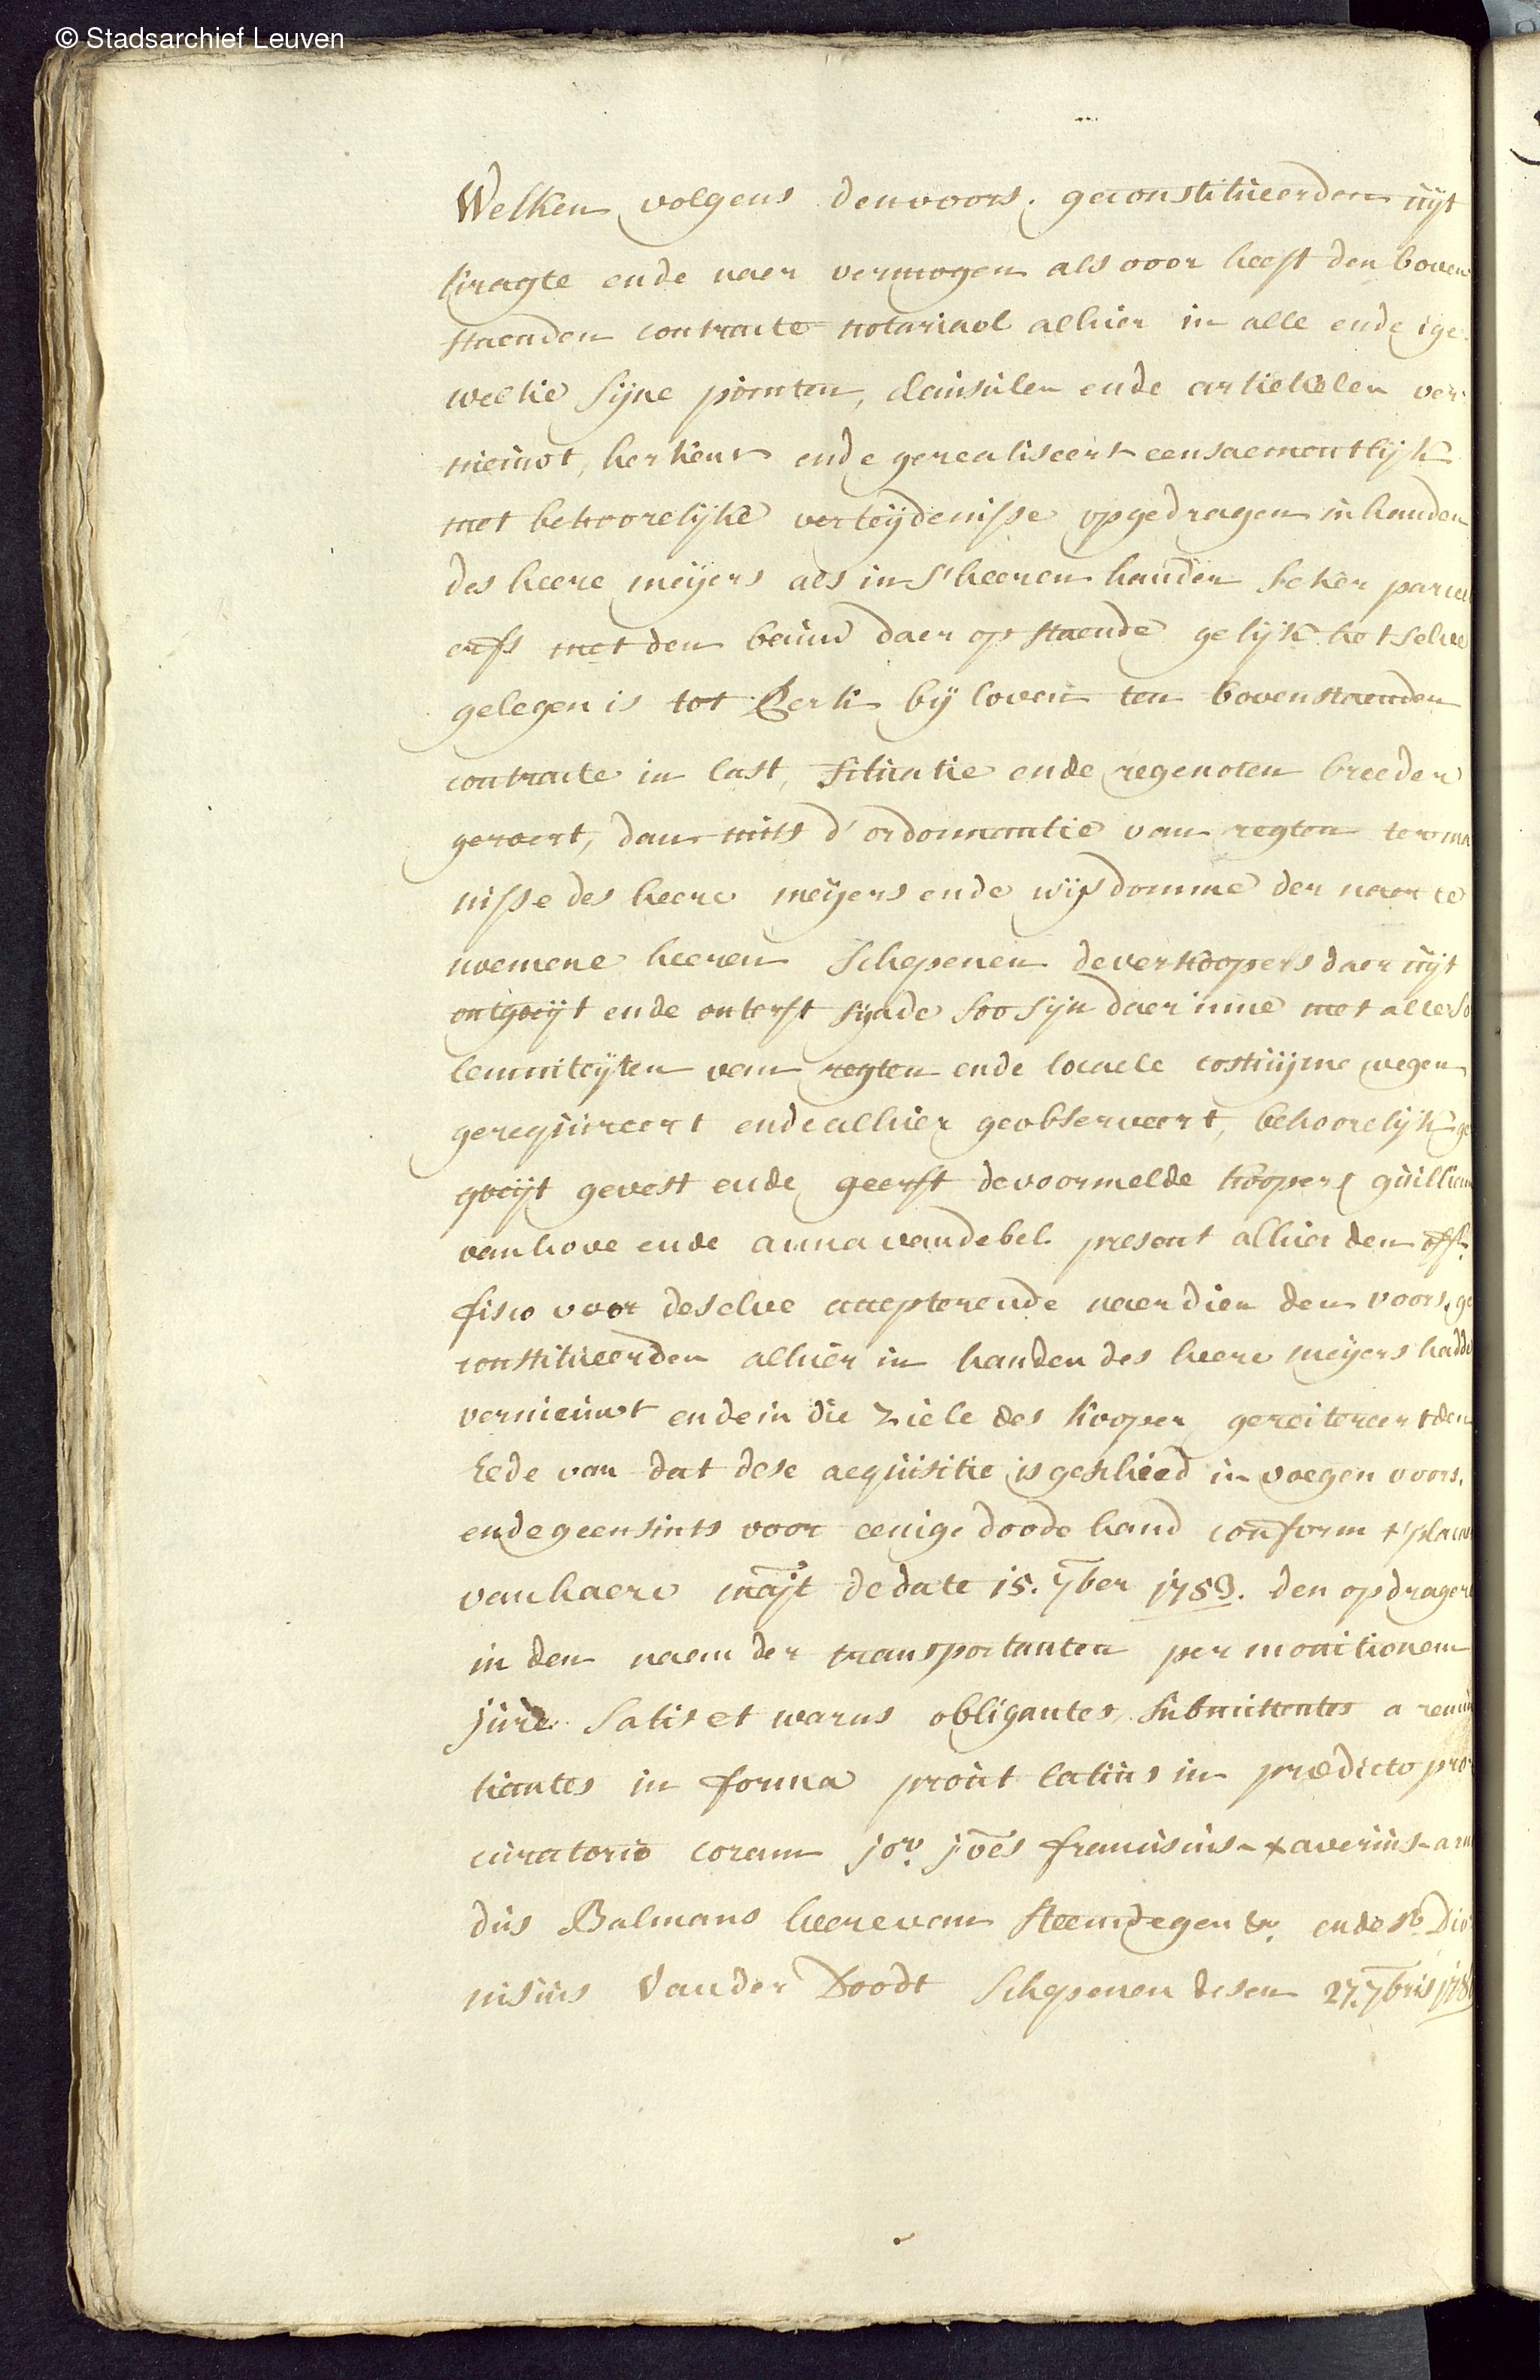 © Stadsarchief Leuven
Welken volgens denvoors. geconstitueerden uijt
kragte ende naer vermogen als voor heeft den boven
staenden contracte notariael alhier in alle ende ige
welke sijne pointen, clausulen ende artiekelen ver
nieuwt, herkent ende gerealiseert eensaementlijk
met behoorelijke verteijdenisse opgedragen in handen
des heere meijers als in s'heeren handen seker parceel
erfs met den bauw daer op staende gelijk het selve
gelegen is tot Berk bij loven ten bovenstaenden
contracte in last, situatie ende regenoten breeder
geroert, dan mits d'ordonnantie van regten terma
nisse des heere meijers ende wijsdomme der naer te
noemene heeren Schepenen de verkoopers daer uijt
ontgoeijt ende onterft sijnde soo sijn daer inne met alle so
lemniteijten van regten ende locaele costuijme wegen
gerequireert ende alhier geobserveert, behoorelijk ge
goeijt gevest ende geerft de voormelde koopers guilliam
vanhove ende anna vandebel present alhier den off.
fisco voor deselve accepterende naerdien den voors. ge
constitueerden alhier in handen des heere meijers hadde
vernieuwt ende in die Ziele des kooper gereitereert den
Eede van dat dese acquisitie is geschied in voegen voors.
ende geensints voor eenige doode hand conform t'placc
van haere maijt de date 15. 7ber 1753. den opdragere
in den naem der transportanten per monitionem
jure satis et warus obligantes, submittentes a renun
tiantes in forma prout latius in prædicto pro
curatorio coram jor. joes franciscus-xaverius-arn
dus Balmans heere van Steendegen &c. ende Sr. Dio
nisius Vander Doodt Schepenen desen 27. 7bris 178